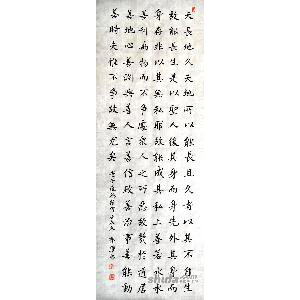 天長地久天地所以能長且久者以其不自生
故能長生是以聖人後其身而身先外其身而
身存非以其無私耶故能成其私上善若水水
善利萬物而不爭處衆人之所惡故幾於道居
善地心善淵與善仁言善信政善治事善能動
善時夫唯不爭故無尤矣